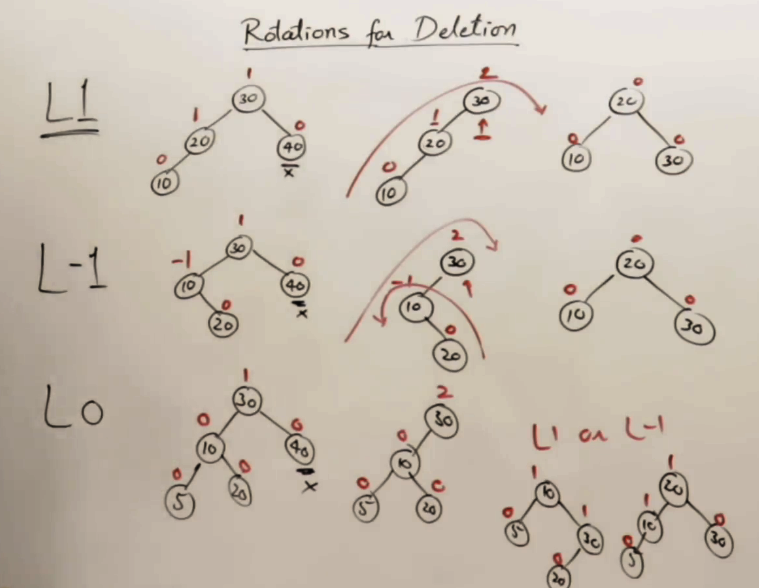 Rotations for Deletion
L1
1
30
1
20
0
40
x
0
10
2
30
1
20
0
10
0
20
0
10
0
30
L-1
1
30
-1
10
0
40
x
0
20
2
30
-1
10
0
20
0
20
0
10
0
30
L0
1
30
0
10
0
40
x
0
5
0
20
2
30
0
10
0
5
0
20
L1 or L-1
1
10
0
5
1
30
0
20
1
20
1
10
0
30
0
5